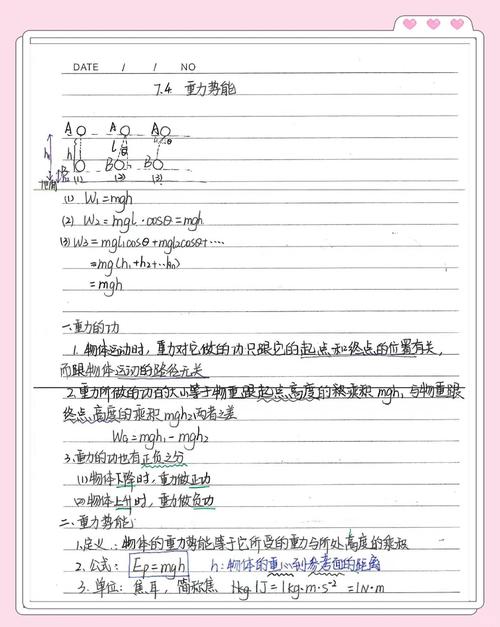 DATE / / NO
7.4 重力势能
A A A
h h l θ θ
B B
地面 (1) (2) (3)
(1) W₁=mgh
(2) W₂=mgL·cosθ=mgh
(3) W₃=mgl₁cosθ+mgl₂cosθ+····
=mg(h₁+h₂+···hn)
=mgh
一.重力的功
1. 物体运动时，重力对它做的功只跟它的起点和终点的位置有关，
而跟物体运动的路径无关
2.重力所做的功的大小等于物重跟起点高度的乘积mgh₁与物重跟
终点高度的乘积mgh₂两者之差
WG=mgh₁-mgh₂
3.重力的功也有正负之分
(1)物体下降时，重力做正功
(2)物体上升时，重力做负功
二.重力势能
1.定义：物体的重力势能等于它所受的重力与所处高度的乘积
2.公式：Ep=mgh h:物体的重心到参考面的距离
3.单位：焦耳，简称焦 1J=1kg·m·s⁻²=1N·m